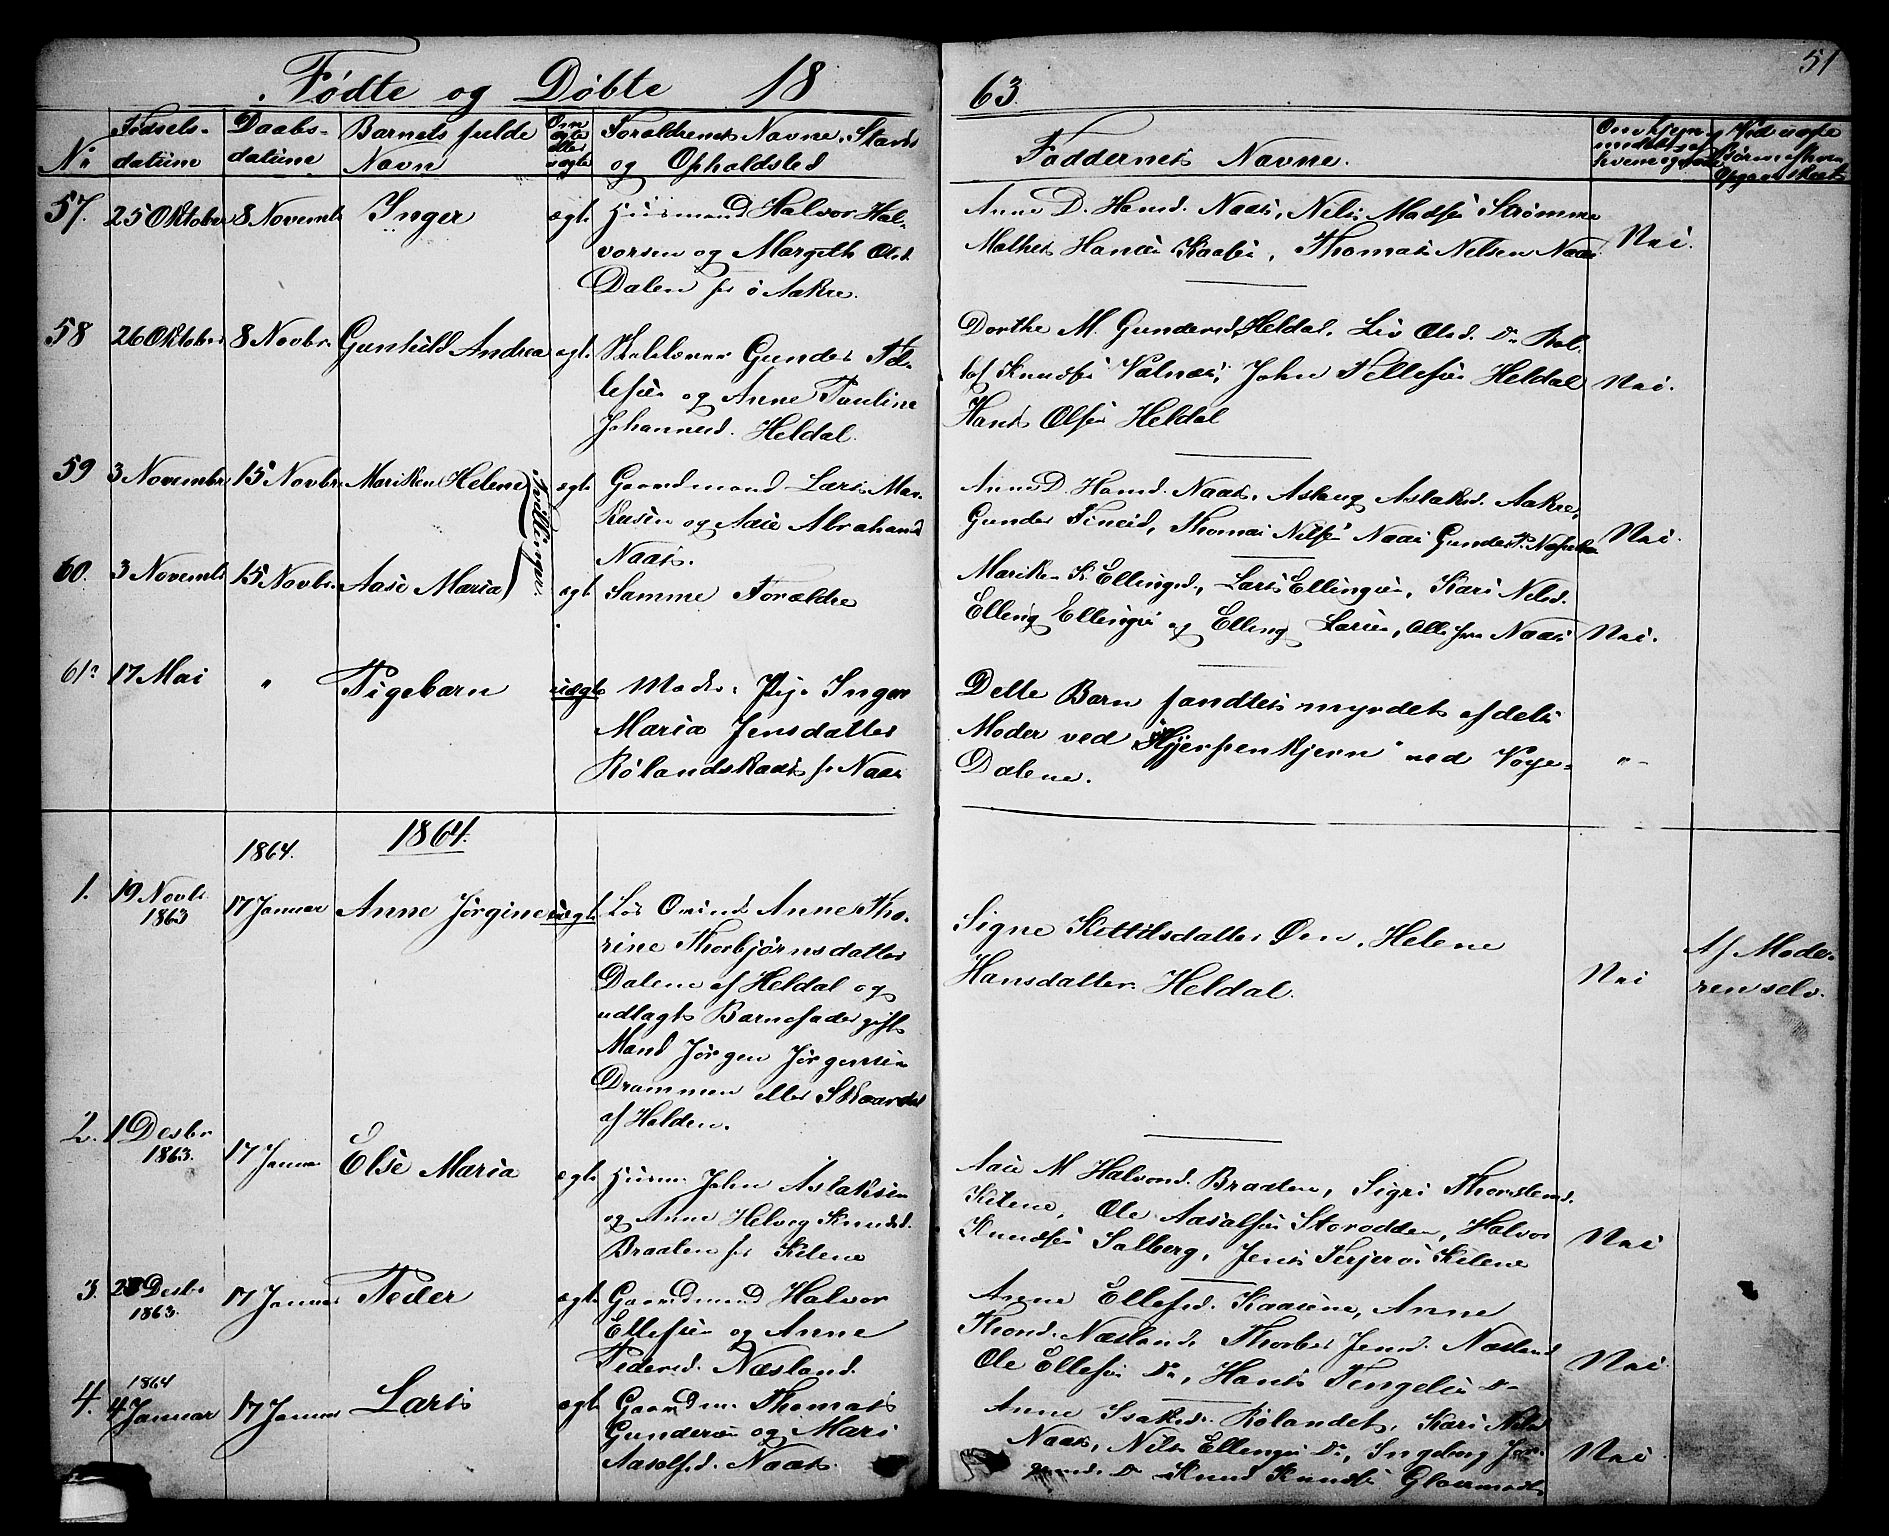 Fødte og Døbte 18
63.
51
No
Fødsels-
datum
Daabs-
datum
Barnets fulde
Navn
Om
ægte
eller
uægte
Forældrenes Navne, Stand
og Opholdsted
Faddernes Navne.
57. 25 Oktober 8 Novembr Inger ægte Huusmand Halvor Hal-
vorsen og Margith Olsd.
Dalen fr ö Aakre.
Anne D. Hansd. Naas, Nils Madsen Strømme
Mathes Hansen Kaasa, Thomas Nilsen Naas
Nei.
58 26 Oktober 8 Novbr. Gunhild Andrea ægte Skolelærer Gunder Tol-
lefsen og Anne Pauline
Johannesd. Heldal.
Dorthe M. Gundersd. Heldal, Liv Olsd. Do
Knudsen Valnæs, John Tellefsen Heldal
Hans Olsen Heldal
Nei.
59 3 Novembr 15 Novbr. Mariken Helene ægte Gaardmand Lars Mar-
kusen og Aase Abrahamsd.
Naas.
Tvillinger.
Anne D. Hansd. Naas, Aslaug Aslaksd. Aakre,
Gunder Fineid, Thomas Nilsen Naas Gunder P.
Nei.
60. 3 Novembr 15 Novbr. Aase Maria ægte Samme Forældre
Mariken K. Ellingsd., Lars Ellingsen, Kari Nilsd.
Elling Ellingsen og Elling Larsen, Alle fra Naas
Nei.
61. 17 Mai " Pigebarn uægte Moder: Pige Inger
Maria Jensdatter
Rølandskaas fr Naas
Dette Barn fandtes myrdet af dets
Moder ved "Hjerpenkjern" ved Voje-
Dalene.
"-
1864.
1864.
1. 19 Novbr.
1863
17 Januar Anne Jørgine uægte Løs Qvind Anne Tho-
rine Thorbjørnsdatter
Dalene af Heldal og
udlagt Barnefader gift
Mand Jørgen Jørgensen
Drammen eller Skaardal
af Holden.
Signe Kittilsdatter Øen, Helene
Hansdatter Heldal.
Nei
Af Mode-
ren selv.
2. 1 Desbr
1863.
17 Januar Else Maria ægte Huusm. John Aslaksen
og Anne Helvig Knudsd.
Braaten fr Kilene
Aase M Halvorsd. Braaten, Sigri Thorstensd.
Kilene, Ole Aasolfsen Storodden, Halvor
Knudsen Solberg, Jens Terjesen Kilene
Nei
3. Desbr
1863.
17 Januar Peder ægte Gaardmand Halvor
Ellefsen og Anne
Pedersd. Næsland.
Anne Ellefsd. Kaasene, Anne
Thorsd. Næsland, Thorbør Jensd. Næsland
Ole Ellefsen Do, Hans Tengelsen Do
Nei
1864
4. 4 Januar 17 Januar Lars ægte Gaardm. Thomas
Gundersen og Mari
Aasolfsd. Naas.
Anne Isaksd. Rølandet, Kari Nilsd
Naas, Nils Ellingsen Do, Ingeborg
Do Knud Knudsen
Nei